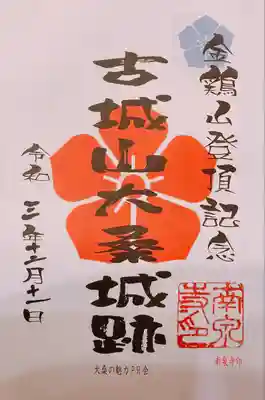 金鶏山登頂記念
古城山大桑城跡
令和 三年十二月十一日
南泉寺印
南泉寺印
大桑の魅力